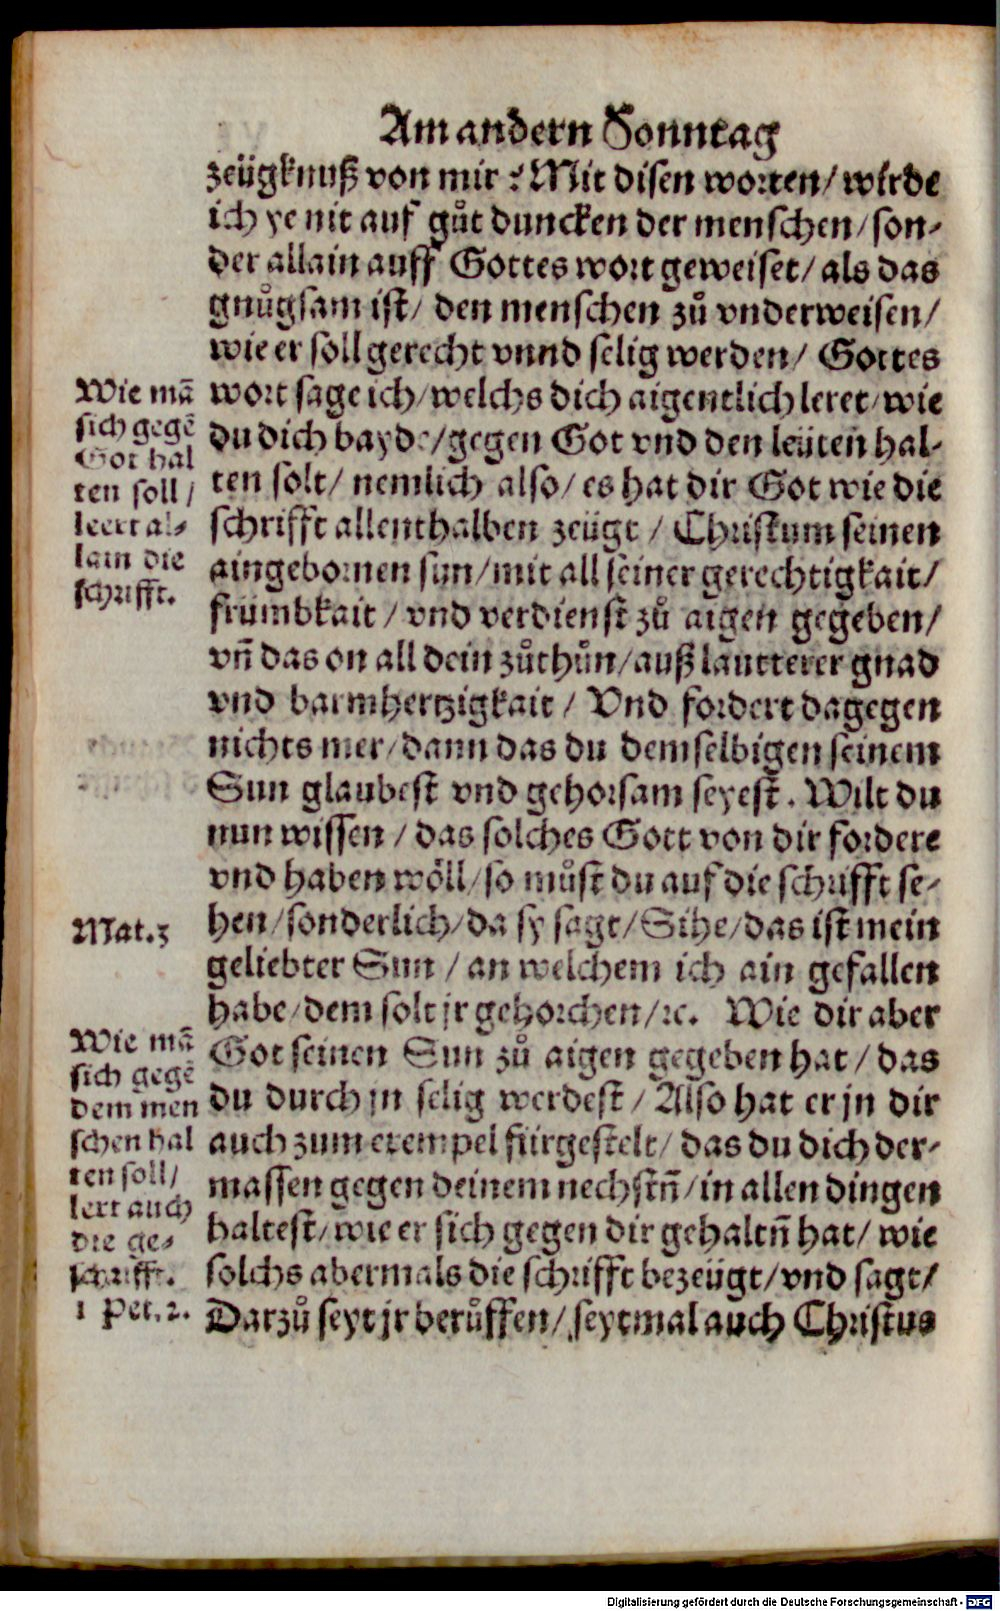 Am andern Sonntag
zeügknuß von mir? Mit disen worten/ wirde
ich ye nit auf gůt duncken der menschen/ son-
der allain auff Gottes wort geweiset/ als das
gnůgsam ist/ den menschen zů vnderweisen/
wie er soll gerecht vnnd selig werden/ Gottes
wort sage ich/ welchs dich aigentlich leret/ wie
du dich bayde/ gegen Got vnd den leüten hal-
ten solt/ nemlich also/ es hat dir Got wie die
schrifft allenthalben zeügt/ Christum seinen
aingebornen sun/ mit all seiner gerechtigkait/
frümbkait/ vnd verdienst zů aigen gegeben/
vñ das on all dein zůthůn/ auß lautterer gnad
vnd barmhertzigkait/ Vnd fordert dagegen
nichts mer/ dann das du demselbigen seinem
Sun glaubest vnd gehorsam seyest. Wilt du
nun wissen/ das solches Gott von dir fordere
vnd haben wöll/ so můst du auf die schrifft se-
hen/ sonderlich/ da sy sagt/ Sihe/ das ist mein
geliebter Sun/ an welchem ich ain gefallen
habe/ dem solt jr gehorchen/ ꝛc. Wie dir aber
Got seinen Sun zů aigen gegeben hat/ das
du durch jn selig werdest/ Also hat er jn dir
auch zum exempel fürgestelt/ das du dich der-
massen gegen deinem nechstñ/ in allen dingen
haltest/ wie er sich gegen dir gehaltñ hat/ wie
solchs abermals die schrifft bezeügt/ vnd sagt/
Darzů seyt jr berůffen/ seytmal auch Christus
Wie mã
sich gegẽ
Got hal
ten soll/
leert al-
lain die
schrifft.
Mat.3
Wie mã
sich gegẽ
dem men
schen hal
ten soll/
lert auch
die ge-
schrifft.
1 Pet.2.
Digitalisierung gefördert durch die Deutsche Forschungsgemeinschaft - DFG